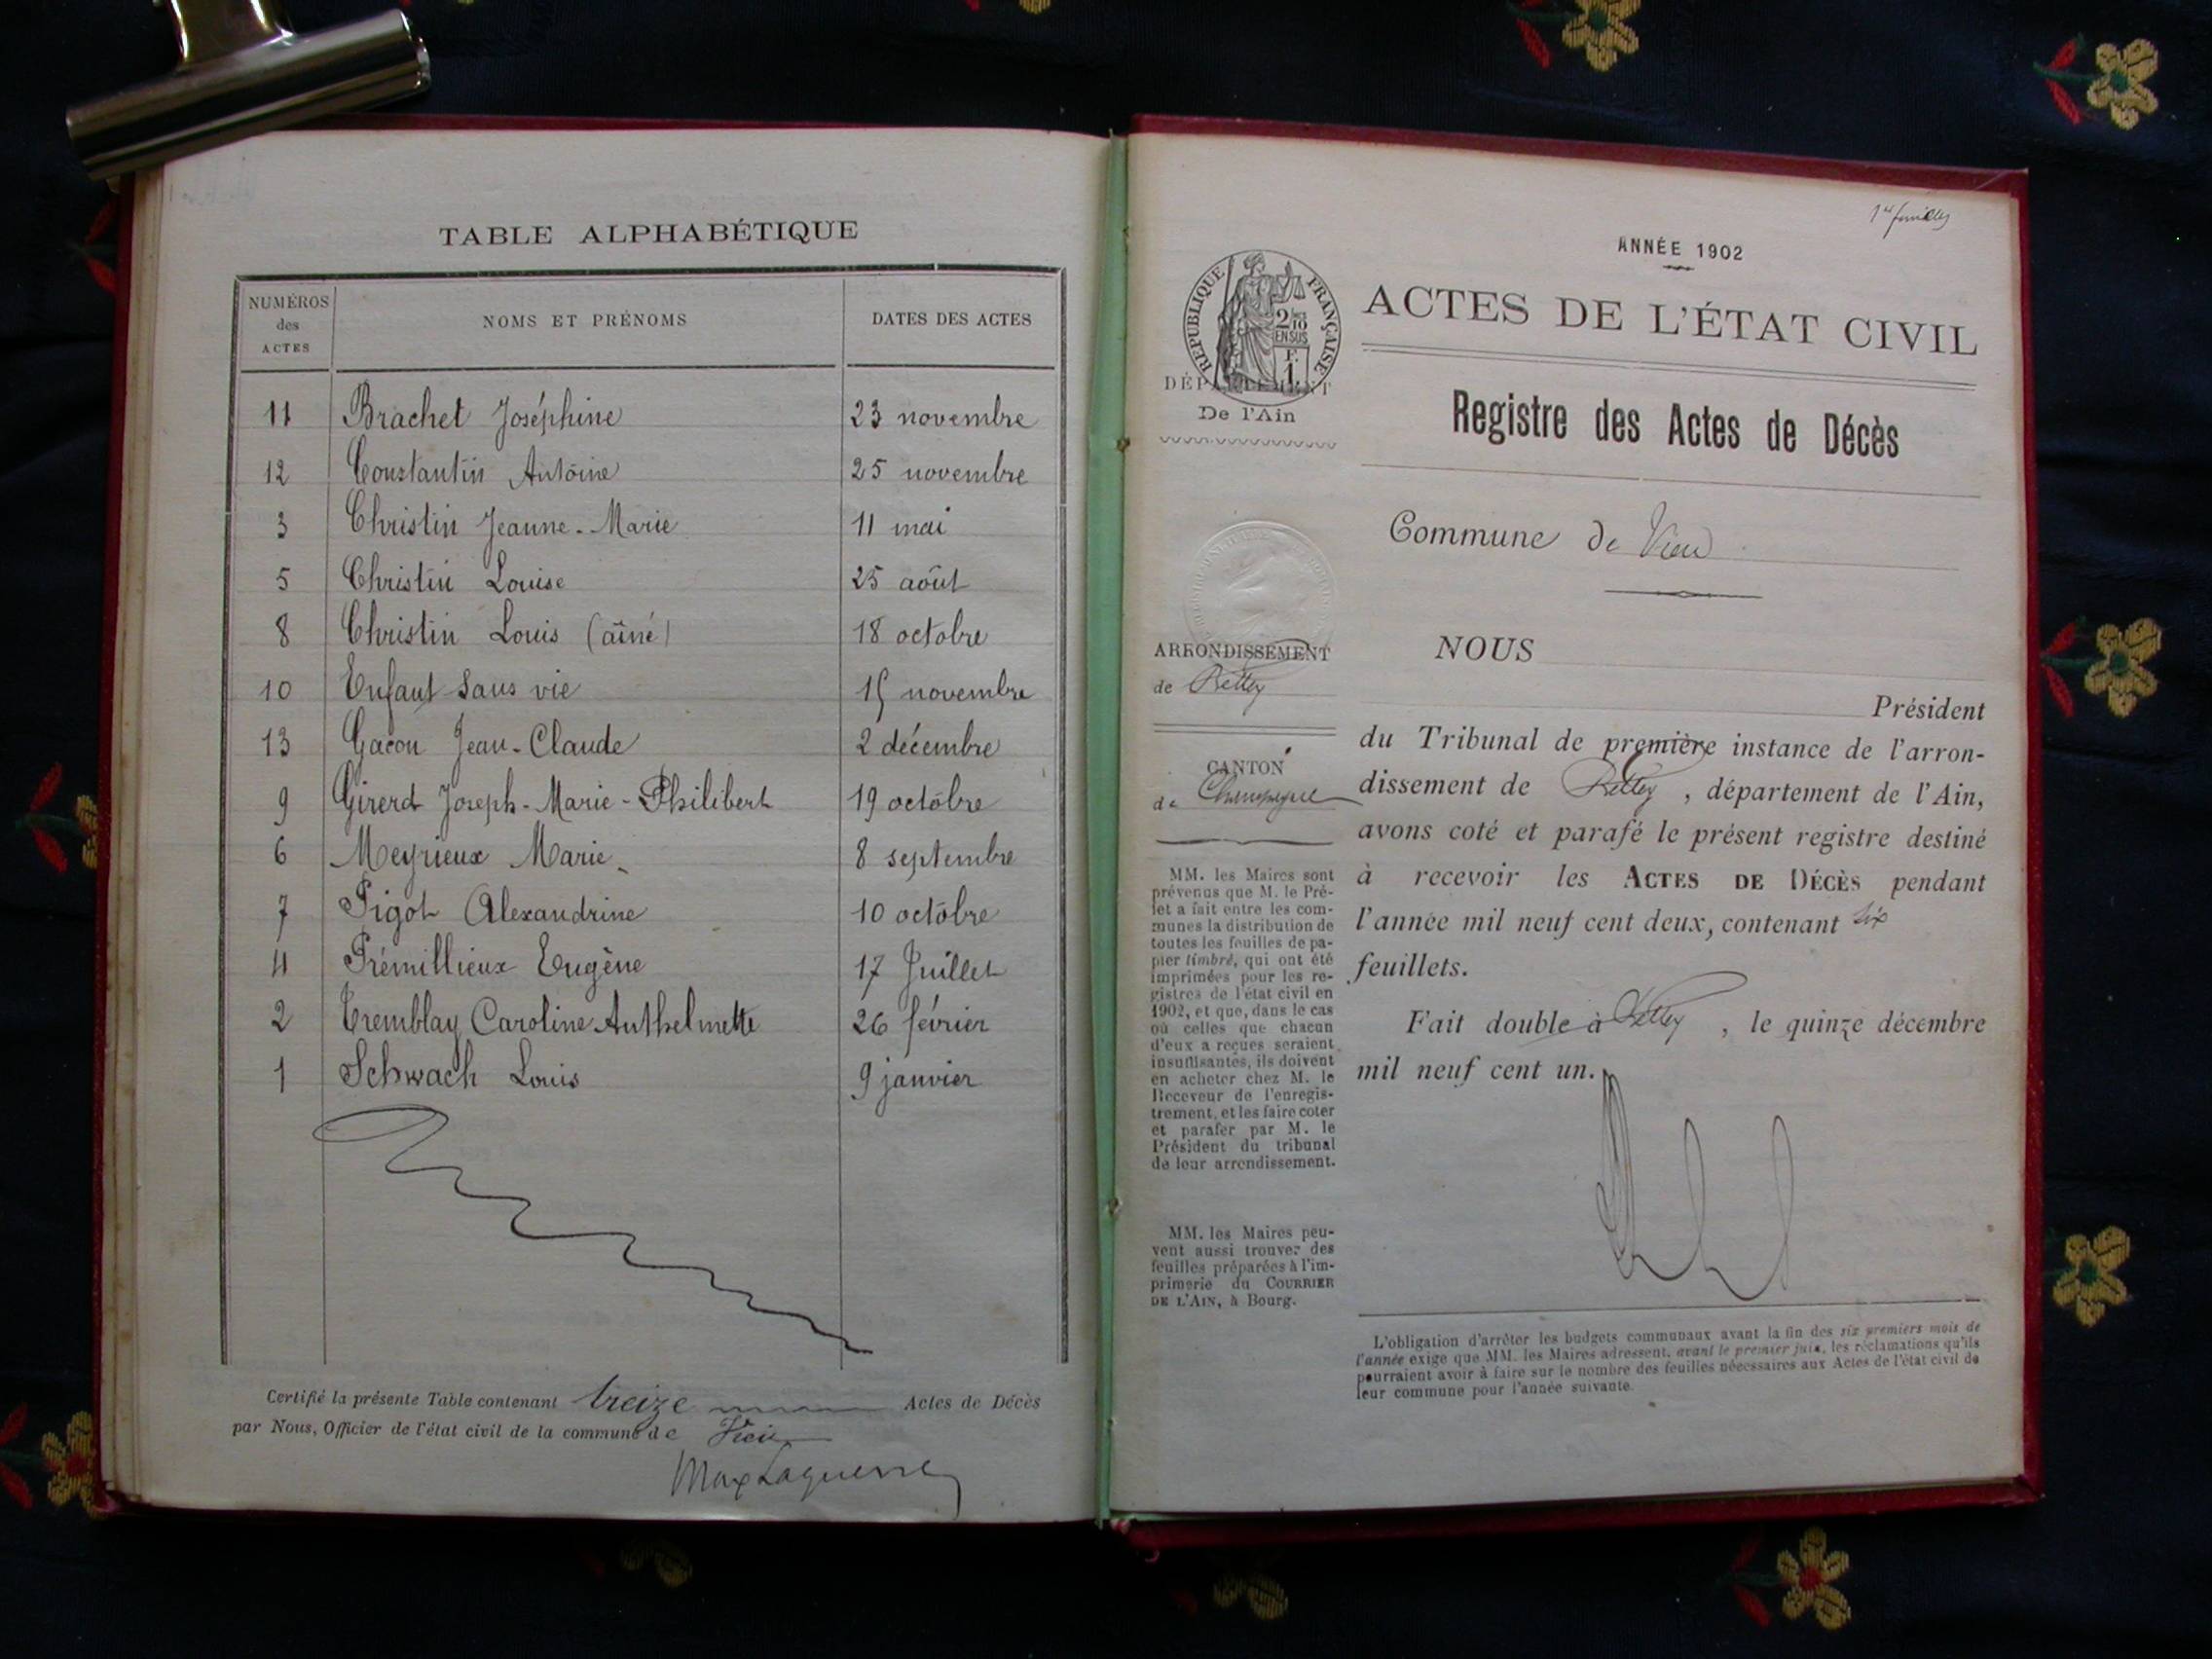 TABLE ALPHABÉTIQUE
NUMÉROS des ACTES NOMS ET PRÉNOMS DATES DES ACTES
11 Brachet Joséphine 23 novembre
12 Constantin Antoine 25 novembre
3 Christin Jeanne-Marie 11 mai
5 Christin Louise 25 août
8 Christin Louis (aîné) 18 octobre
10 Enfant sans vie 15 novembre
13 Gacon Jean-Claude 2 décembre
9 Girerd Joseph-Marie-Philibert 19 octobre
6 Meyrieux Marie 8 septembre
7 Pigot Alexandrine 10 octobre
4 Prémillieux Eugène 17 Juillet
2 Tremblay Caroline Anthelmette 26 février
1 Schwach Louis 9 janvier
Certifié la présente Table contenant treize Actes de Décès
par Nous, Officier de l'état civil de la commune de Vieu
Max Laguerre
ANNÉE 1902
ACTES DE L'ÉTAT CIVIL
Registre des Actes de Décès
Commune de Vieu
RÉPUBLIQUE FRANÇAISE
2/10
EN SUS
F.
1
DÉPARTEMENT
De l'Ain
ARRONDISSEMENT
de Belley
CANTON
de Champagne
MM. les Maires sont
prévenus que M. le Pré-
fet a fait entre les com-
munes la distribution de
toutes les feuilles de pa-
pier timbré, qui ont été
imprimées pour les re-
gistres de l'état civil en
1902, et que, dans le cas
où celles que chacun
d'eux a reçues seraient
insuffisantes, ils doivent
en acheter chez M. le
Receveur de l'enregis-
trement, et les faire coter
et parafer par M. le
Président du tribunal
de leur arrondissement.
MM. les Maires peu-
vent aussi trouver des
feuilles préparées à l'im-
primerie du COURRIER
DE L'AIN, à Bourg.
NOUS
Président
du Tribunal de première instance de l'arron-
dissement de Belley, département de l'Ain,
avons coté et parafé le présent registre destiné
à recevoir les ACTES DE DÉCÈS pendant
l'année mil neuf cent deux, contenant six
feuillets.
Fait double à Belley, le quinze décembre
mil neuf cent un.
L'obligation d'arrêter les budgets communaux avant la fin des six premiers mois de
l'année exige que MM. les Maires adressent, avant le premier juin, les réclamations qu'ils
pourraient avoir à faire sur le nombre des feuilles nécessaires aux Actes de l'état civil de
leur commune pour l'année suivante.